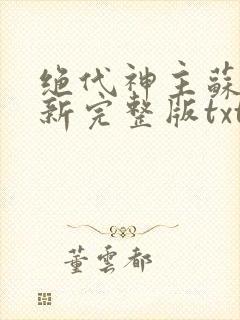 绝代神主蘇
新完整版txt
董雲都